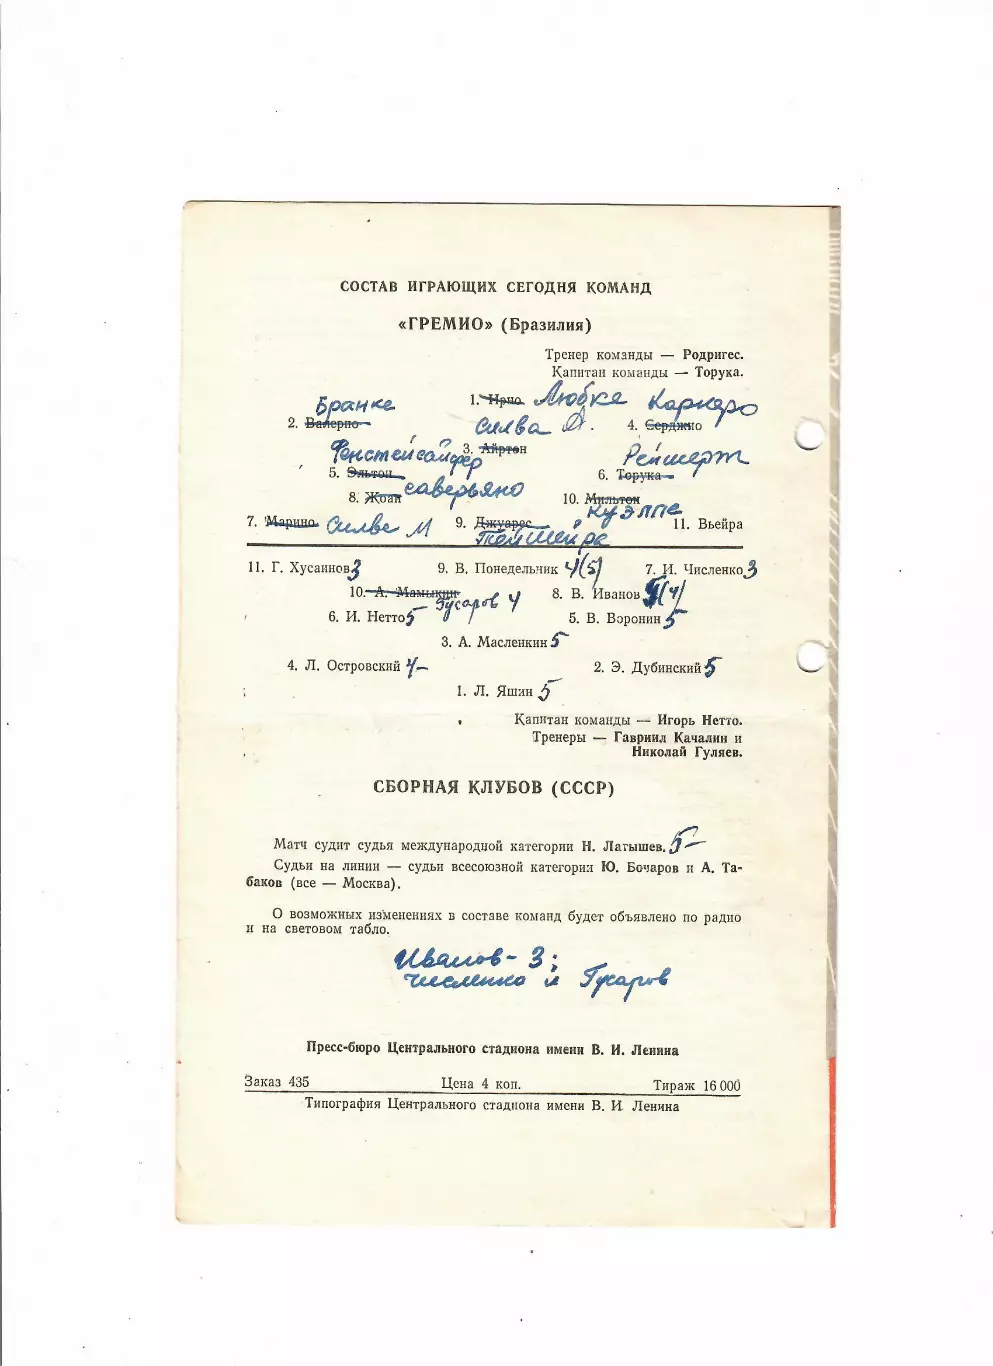 СОСТАВ ИГРАЮЩИХ СЕГОДНЯ КОМАНД
«ГРЕМИО» (Бразилия)
Тренер команды — Родригес.
Капитан команды — Торука.
1. Ирно Любке Карнеро
Бранке
2. Валерио Силва Д. 4. Сержио
3. Айртон
Фенстейсайфер Рейшерт
5. Эльтон 6. Торука
8. Жоаи саверьяно 10. Мильтон
Куэлле
7. Марино Силве М 9. Джуарес 11. Вьейра
Тейшейра
11. Г. Хусаинов 3 9. В. Понедельник 4(5) 7. И. Численко 3
10. А. Мамыкин 8. В. Иванов (4)
Гусаров 4
6. И. Нетто 5 5. В. Воронин 5
3. А. Масленкин 5
4. Л. Островский 4— 2. Э. Дубинский 5
1. Л. Яшин 5
Капитан команды — Игорь Нетто.
Тренеры — Гавриил Качалин и
Николай Гуляев.
СБОРНАЯ КЛУБОВ (СССР)
Матч судит судья международной категории Н. Латышев. 5—
Судьи на линии — судьи всесоюзной категории Ю. Бочаров и А. Та-
баков (все — Москва).
О возможных изменениях в составе команд будет объявлено по радио
и на световом табло.
Иванов - 3;
Численко и Гусаров
Пресс-бюро Центрального стадиона имени В. И. Ленина
Заказ 435 Цена 4 коп. Тираж 16 000
Типография Центрального стадиона имени В. И. Ленина